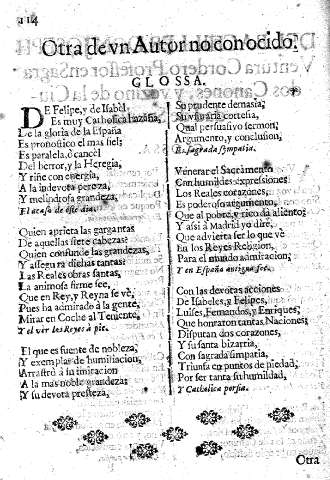 114
Otra de vn Autor no conocido.
GLOSSA.
DE Felipe, y de Isabel
Es muy Catholica hazaña,
De la gloria de la España
Es pronostico el mas fiel;
Es paralela, ò cancel
Del horror, y la Heregia,
Y riñe con energia,
A la indevota pereza,
Y melindrosa grandeza,
El acaso de este dia.
Quien aprieta las gargantas
De aquellas siete cabezas?
Quien confunde las grandezas,
Y assegura dichas tantas?
Las Reales obras santas,
La animosa firme fee,
Que en Rey, y Reyna se vè;
Pues ha admirado à la gente,
Mirar en Coche al Teniente,
Y al vèr los Reyes à pie.
El que es fuente de nobleza,
Y exemplar de humiliacion,
Arrastrò à su imitacion
A la mas noble grandeza;
Y su devota presteza,
Su prudente demasia,
Su voluntaria cortesia,
Qual persuasivo sermon,
Argumento, y conclusion,
Es sagrada simpatia.
Venerar el Sacramento
Con humildes expresiones
Los Reales corazones,
Es poderoso argumento,
Que al pobre, y rico dà aliento;
Y assi à Madrid yo dirè,
Que advierta ser lo que vè
En los Reyes Religion,
Para el mundo admiracion,
Y en España antigua fee.
Con las devotas acciones
De Isabeles, y Felipes,
Luises, Fernandos, y Enriques,
Que honraron tantas Naciones;
Disputan dos corazones,
Y su santa bizarria,
Con sagrada simpatia,
Triunfa en puntos de piedad,
Por ser tanta su humildad,
Y Catholica porfia.
Otra